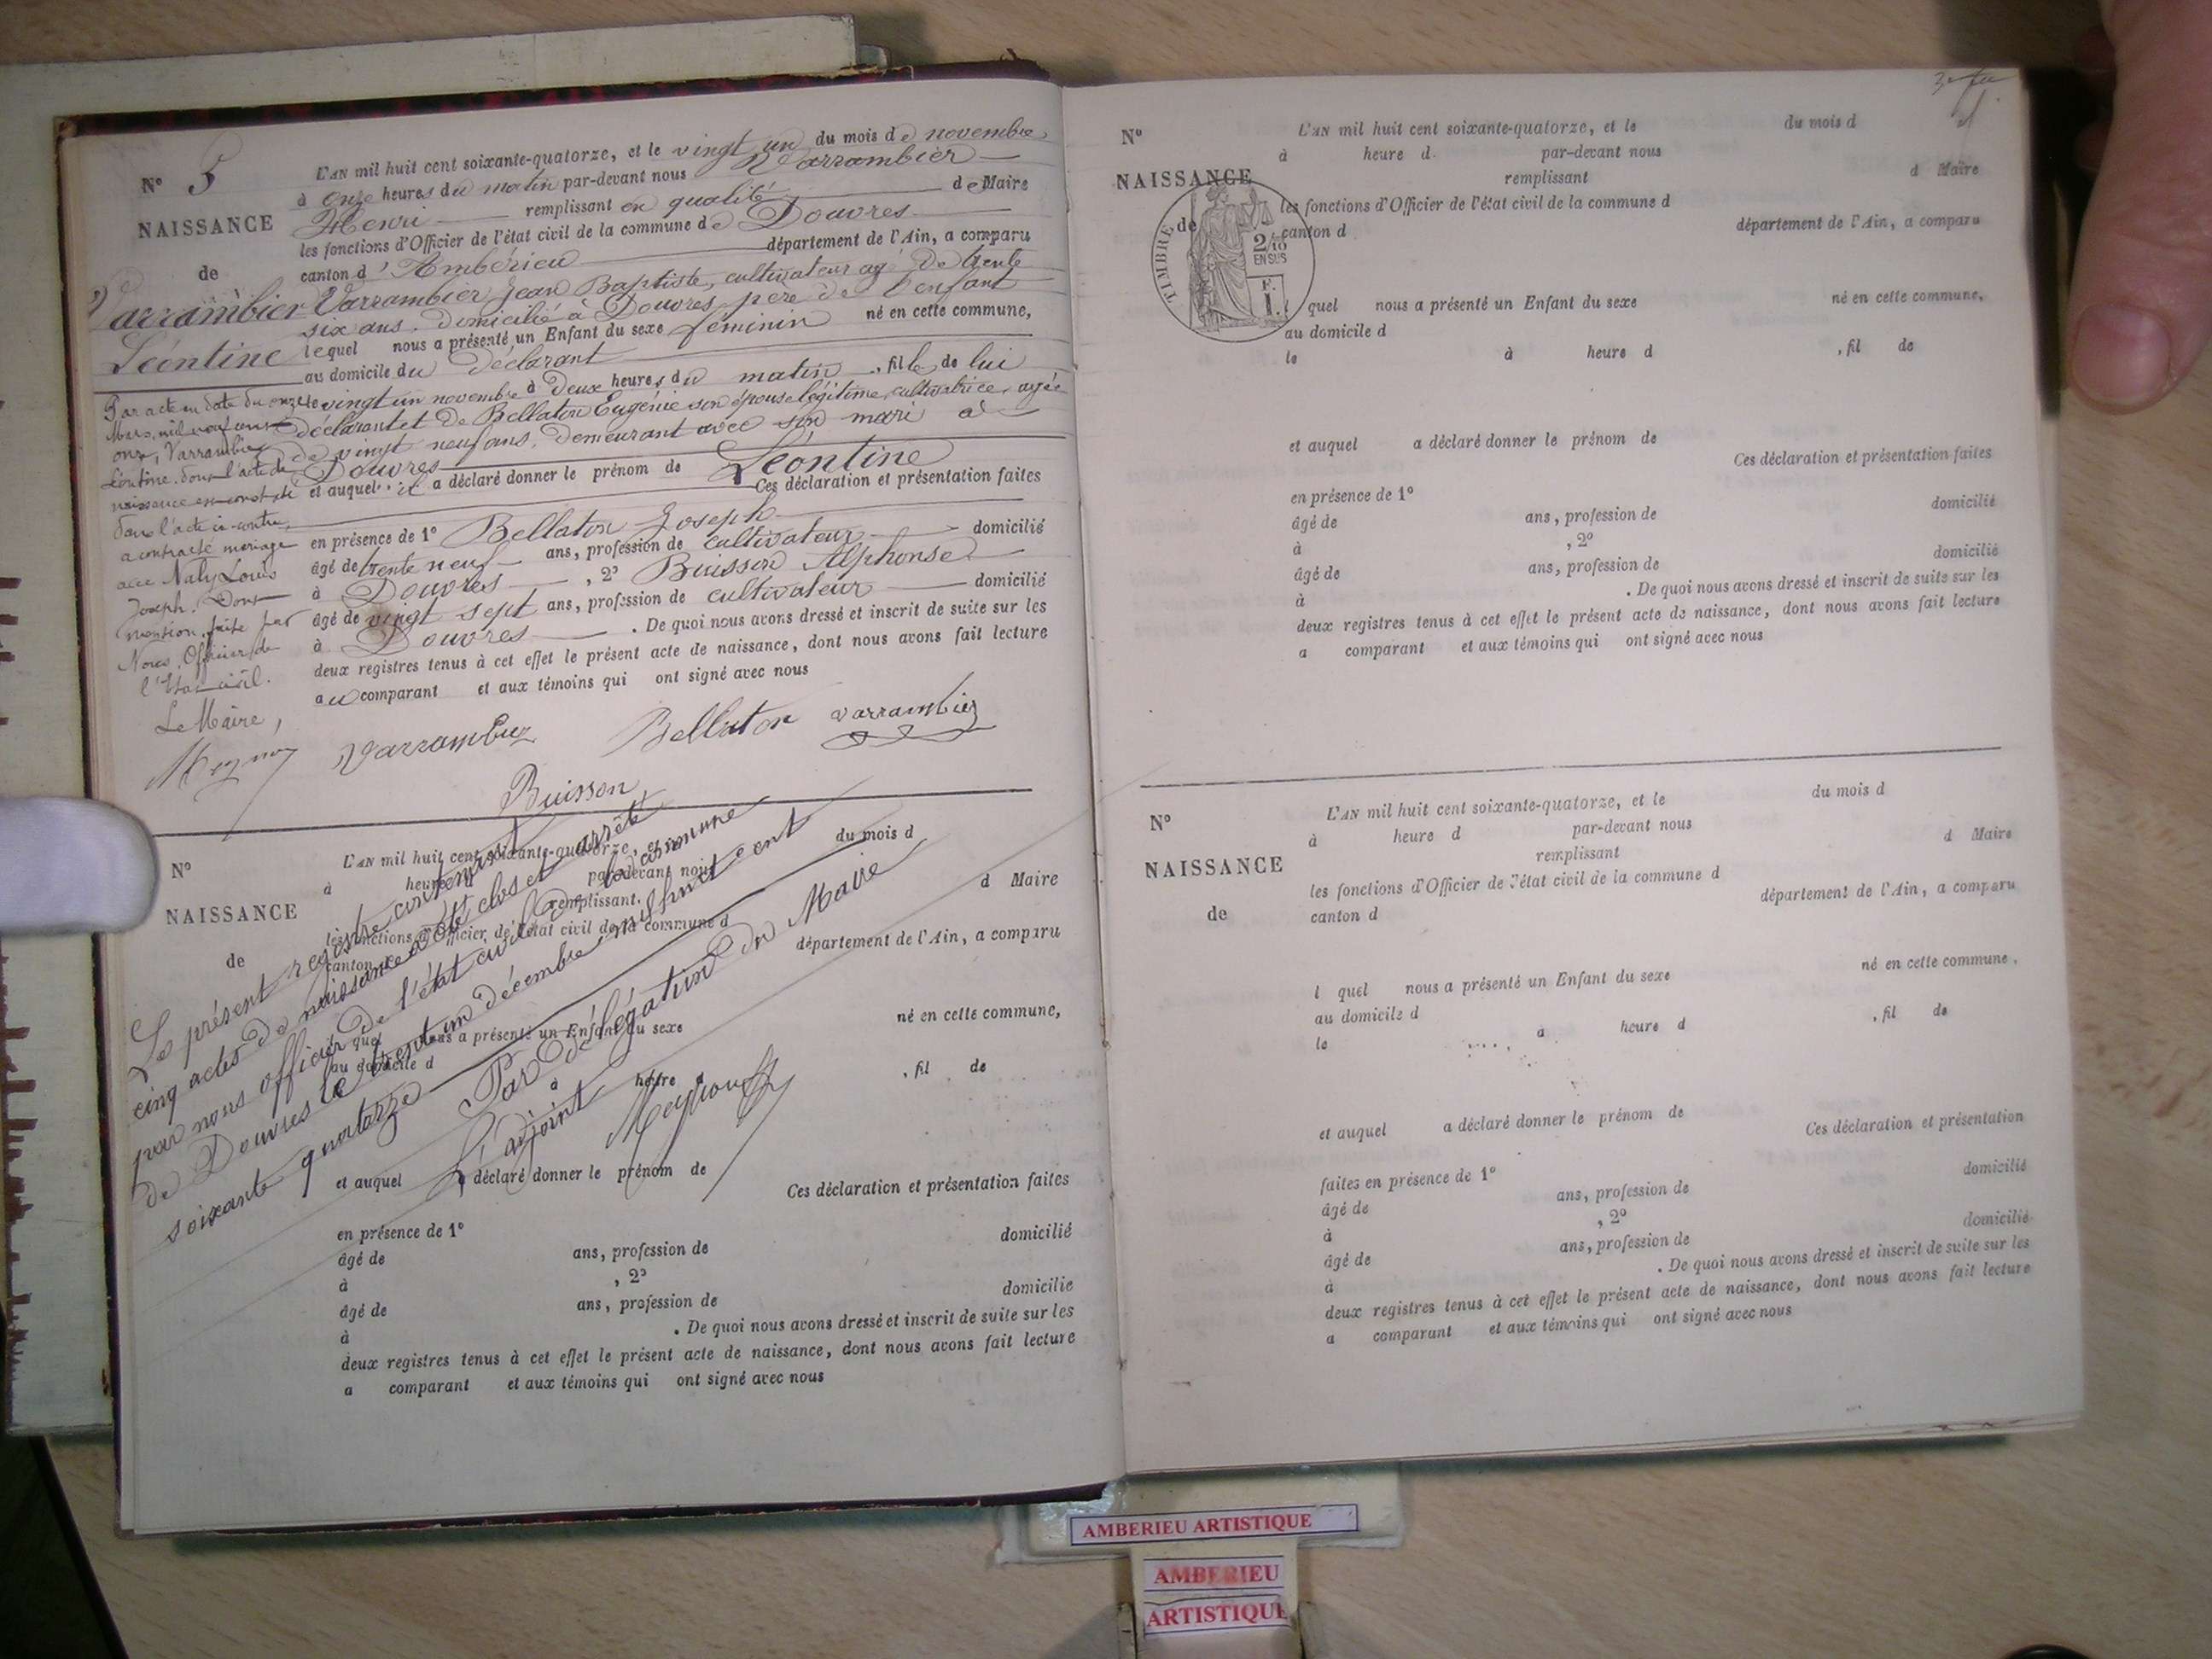 N° 5
NAISSANCE
de
Varrambier
Léontine
L'AN mil huit cent soixante-quatorze, et le vingt un du mois de novembre
à onze heures du matin par-devant nous Varrambier
Henri remplissant en qualité de Maire
les fonctions d'Officier de l'état civil de la commune de Douvres
canton d'Ambérieu département de l'Ain, a comparu
Varrambier Jean Baptiste, cultivateur agé de trente
six ans, domicilié à Douvres, père de l'enfant
lequel nous a présenté un Enfant du sexe féminin né en cette commune,
au domicile du déclarant
le vingt un novembre à deux heures du matin, fille de lui
déclarant et de Bellaton Eugénie son épouse légitime, cultivatrice, agée
de vingt neuf ans, demeurant avec son mari à
Douvres
et auquel il a déclaré donner le prénom de Léontine
Ces déclaration et présentation faites
en présence de 1° Bellaton Joseph
âgé de trente neuf ans, profession de cultivateur domicilié
à Douvres, 2° Buisson Alphonse
âgé de vingt sept ans, profession de cultivateur domicilié
à Douvres. De quoi nous avons dressé et inscrit de suite sur les
deux registres tenus à cet effet le présent acte de naissance, dont nous avons fait lecture
au comparant et aux témoins qui ont signé avec nous
Par acte en date du onze
Mars mil neuf cent
onze, Varrambier
Léontine, dont l'acte de
naissance est constaté
dans l'acte ci-contre,
a contracté mariage
avec Naly Louis
Joseph. Dont
mention faite par
Nous, Officier de
l'Etat-civil.
Le Maire,
Varrambier Bellaton Varrambier
Buisson
N°
NAISSANCE
de
L'AN mil huit cent soixante-quatorze, et le du mois d
à heure d par-devant nous
remplissant d Maire
les fonctions d'Officier de l'état civil de la commune d
canton d département de l'Ain, a comparu
l quel nous a présenté un Enfant du sexe né en cette commune,
au domicile d
à heure d , fil de
et auquel a déclaré donner le prénom de
Ces déclaration et présentation faites
en présence de 1°
âgé de ans, profession de domicilié
à , 2°
âgé de ans, profession de domicilié
à . De quoi nous avons dressé et inscrit de suite sur les
deux registres tenus à cet effet le présent acte de naissance, dont nous avons fait lecture
a comparant et aux témoins qui ont signé avec nous
Le présent registre contenant
cinq actes de naissance a été clos et arrêté
par nous officier de l'état civil de la commune
de Douvres le trente un décembre mil huit cent
soixante quatorze
Par délégation du Maire
L'adjoint
N°
NAISSANCE
de
TIMBRE
2/10
EN SUS
F.
1.
L'AN mil huit cent soixante-quatorze, et le du mois d
à heure d par-devant nous
remplissant d Maire
les fonctions d'Officier de l'état civil de la commune d
canton d département de l'Ain, a comparu
l quel nous a présenté un Enfant du sexe né en cette commune,
au domicile d
le à heure d , fil de
et auquel a déclaré donner le prénom de
Ces déclaration et présentation faites
en présence de 1°
âgé de ans, profession de domicilié
à , 2°
âgé de ans, profession de domicilié
à . De quoi nous avons dressé et inscrit de suite sur les
deux registres tenus à cet effet le présent acte de naissance, dont nous avons fait lecture
a comparant et aux témoins qui ont signé avec nous
N°
NAISSANCE
de
L'AN mil huit cent soixante-quatorze, et le du mois d
à heure d par-devant nous
remplissant d Maire
les fonctions d'Officier de l'état civil de la commune d
canton d département de l'Ain, a comparu
l quel nous a présenté un Enfant du sexe né en cette commune,
au domicile d
le a heure d , fil de
et auquel a déclaré donner le prénom de
Ces déclaration et présentation
faites en présence de 1°
âgé de ans, profession de domicilié
à , 2°
âgé de ans, profession de domicilié
à . De quoi nous avons dressé et inscrit de suite sur les
deux registres tenus à cet effet le présent acte de naissance, dont nous avons fait lecture
a comparant et aux témoins qui ont signé avec nous
AMBERIEU ARTISTIQUE
AMBERIEU
ARTISTIQUE